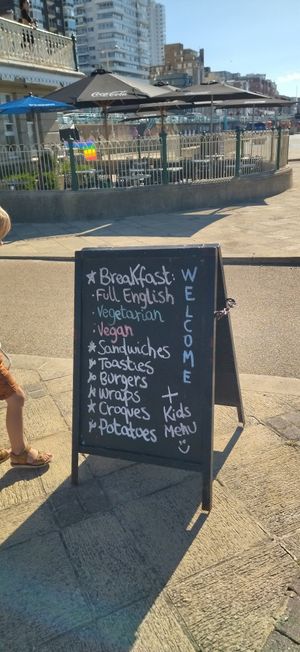 Coca-Cola
★ Breakfast:
• Full English
• Vegetarian
• Vegan
★ Sandwiches
★ Toasties
★ Burgers
★ Wraps
★ Croques
★ Potatoes
WELCOME
+
Kids
Menu